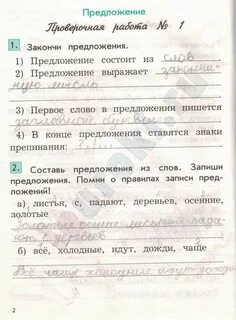 Предложение
Проверочная работа № 1
1. Закончи предложения.
1) Предложение состоит из слов
2) Предложение выражает закончен-
ную мысль
3) Первое слово в предложении пишется
заглавной буквой
4) В конце предложения ставятся знаки
препинания: ? ! .
2. Составь предложения из слов. Запиши
предложения. Помни о правилах записи пред-
ложений!
а) листья, с, падают, деревьев, осенние,
золотые
Золотые осенние листья пада-
ют с деревьев
б) всё, холодные, идут, дожди, чаще
Всё чаще холодные идут дожди
2